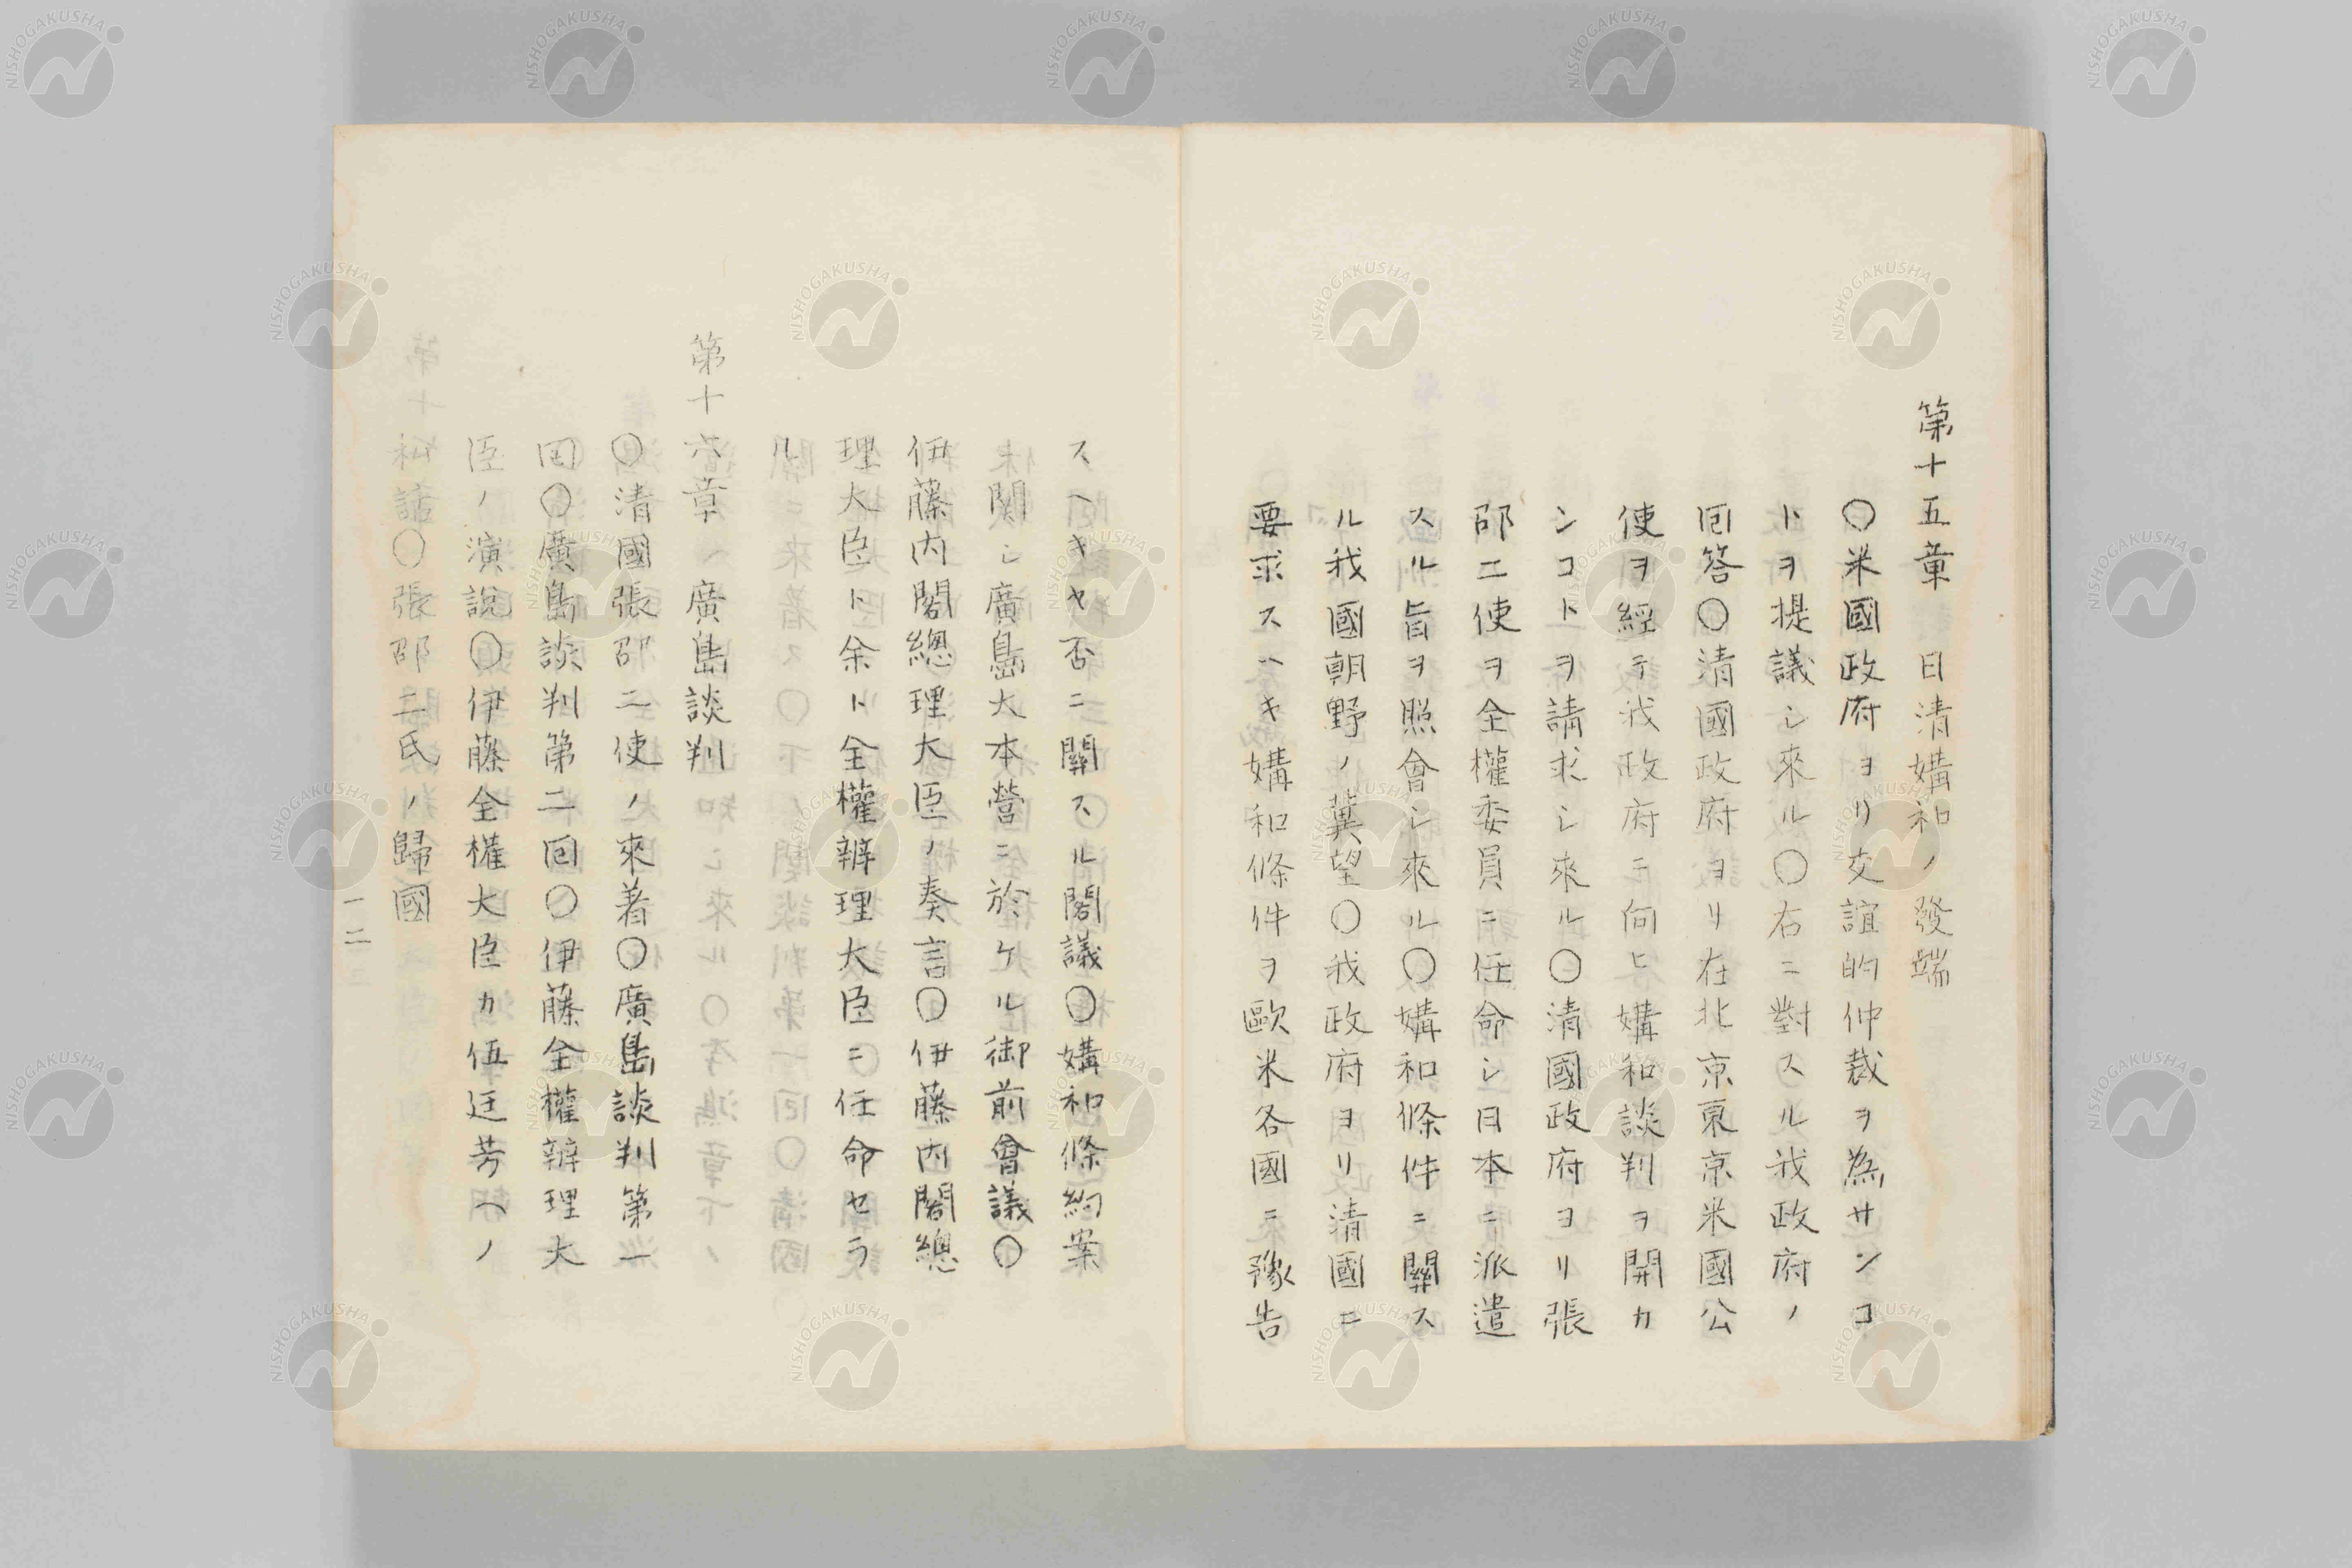 第十五章　日清媾和ノ發端
〇米國政府ヨリ交誼的仲裁ヲ為サンコ
トヲ提議シ來ル〇右ニ對スル我政府ノ
囘答〇清國政府ヨリ在北京東京米國公
使ヲ經テ我政府ニ向ヒ媾和談判ヲ開カ
ンコトヲ請求シ來ル〇清國政府ヨリ張
邵二使ヲ全權委員ニ任命シ日本ニ派遣
スル旨ヲ照會シ來ル〇媾和條件ニ關ス
ル我國朝野ノ冀望〇我政府ヨリ清國ニ
要求スヘキ媾和條件ヲ歐米各國ニ豫告
スヘキヤ否ニ關スル閣議〇媾和條約案
ニ關シ廣島大本營ニ於ケル御前會議〇
伊藤内閣總理大臣ノ奏言〇伊藤内閣總
理大臣ト余ト全權辨理大臣ニ任命セラ
ル
第十六章　廣島談判
〇清國張邵二使ノ來着〇廣島談判第一
囘〇廣島談判第二囘〇伊藤全權辨理大
臣ノ演說〇伊藤全權大臣カ伍廷芳ヘノ
私話〇張邵二氏ノ歸國
一二
NISHOGAKUSHA